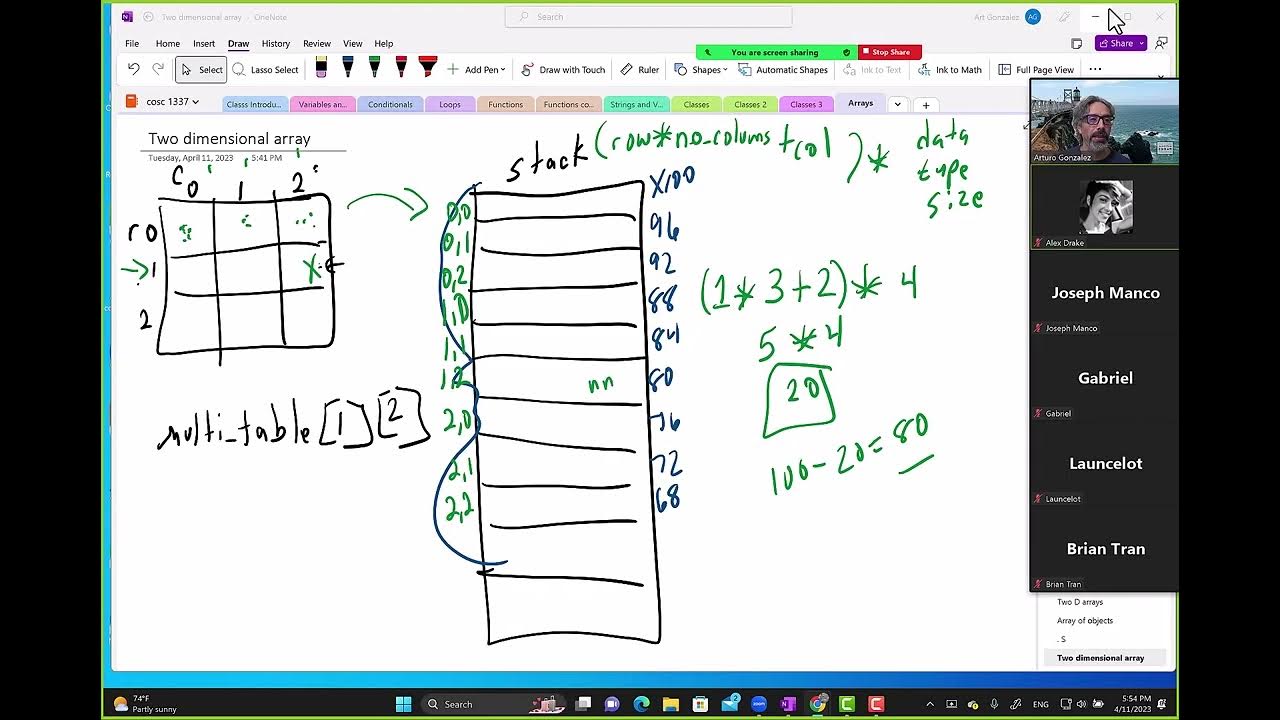 Two dimensional array - OneNote
Search
Art Gonzalez
AG
File Home Insert Draw History Review View Help
You are screen sharing
Stop Share
Share
Select
Lasso Select
Add Pen
Draw with Touch
Ruler
Shapes
Automatic Shapes
Ink to Text
Ink to Math
Full Page View
cosc 1337
Classs Introdu...
Variables an...
Conditionals
Loops
Functions
Functions co...
Strings and V...
Classes
Classes 2
Classes 3
Arrays
Two dimensional array
Tuesday, April 11, 2023 5:41 PM
stack
(row*no_colums + col) * data type size
C0 1 2
r0
1
X
2
multi_table[1][2]
0,0
0,1
0,2
1,0
1,1
1,2
2,0
2,1
2,2
nn
X100
96
92
88
84
80
76
72
68
(1*3+2)*4
5*4
20
100-20=80
Arturo Gonzalez
Alex Drake
Joseph Manco
Joseph Manco
Gabriel
Gabriel
Launcelot
Launcelot
Brian Tran
Brian Tran
Two D arrays
Array of objects
. S
Two dimensional array
74°F
Partly sunny
Search
2
ENG
5:54 PM
4/11/2023